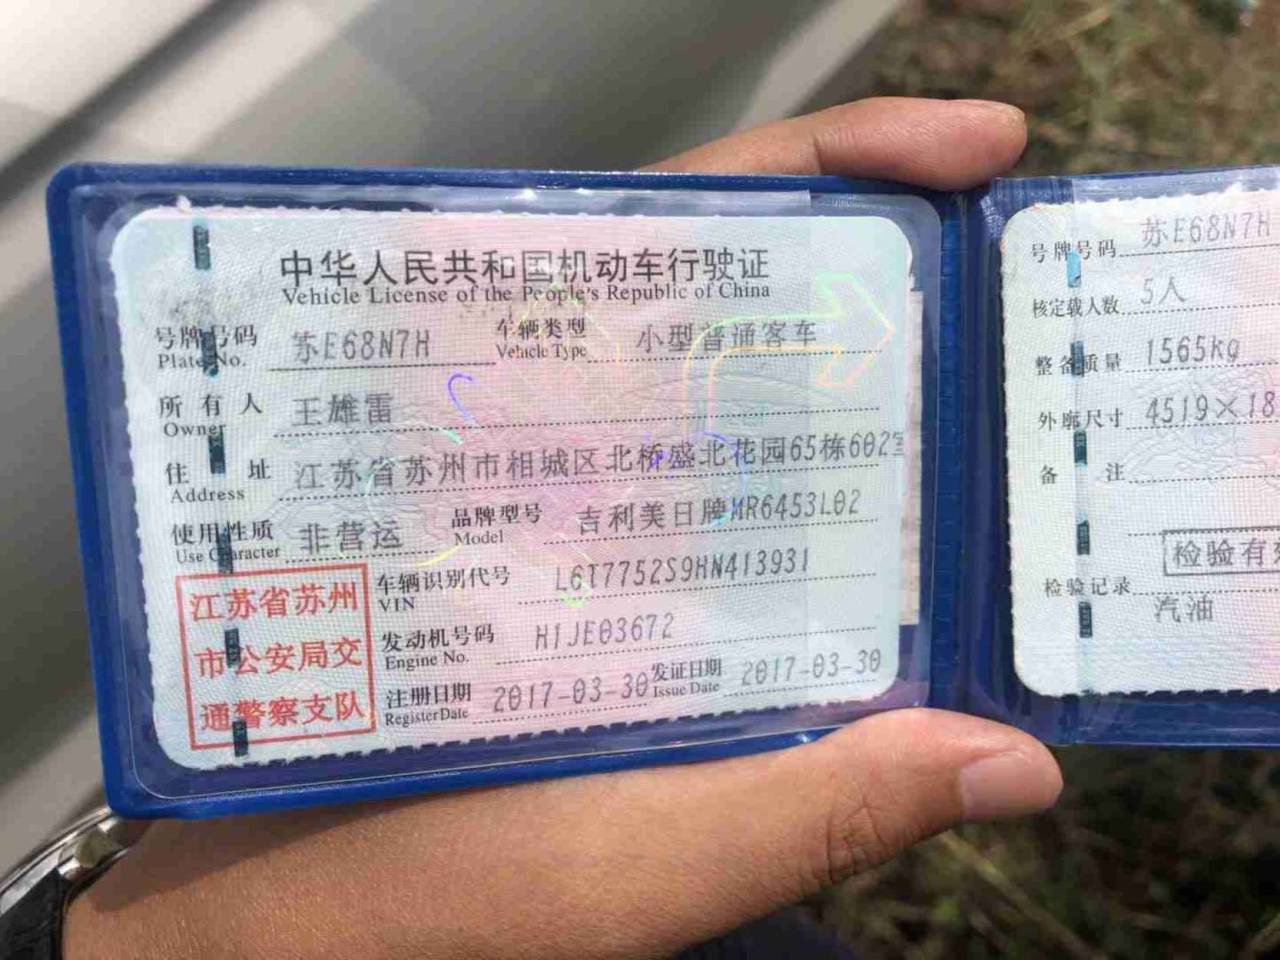 中华人民共和国机动车行驶证
Vehicle License of the People's Republic of China
号牌号码 苏E68N7H 车辆类型 小型普通客车
Plate No. Vehicle Type
所有人 王雄雷
Owner
住址 江苏省苏州市相城区北桥盛北花园65栋602室
Address
使用性质 非营运 品牌型号 吉利美日牌MR6453L02
Use Character Model
车辆识别代号 L6T7752S9HN413931
VIN
发动机号码 H1JE03672
Engine No.
注册日期 2017-03-30 发证日期 2017-03-30
Register Date Issue Date
江苏省苏州
市公安局交
通警察支队
号牌号码 苏E68N7H
核定载人数 5人
整备质量 1565kg
外廓尺寸 4519×18
备注
检验有
检验记录
汽油